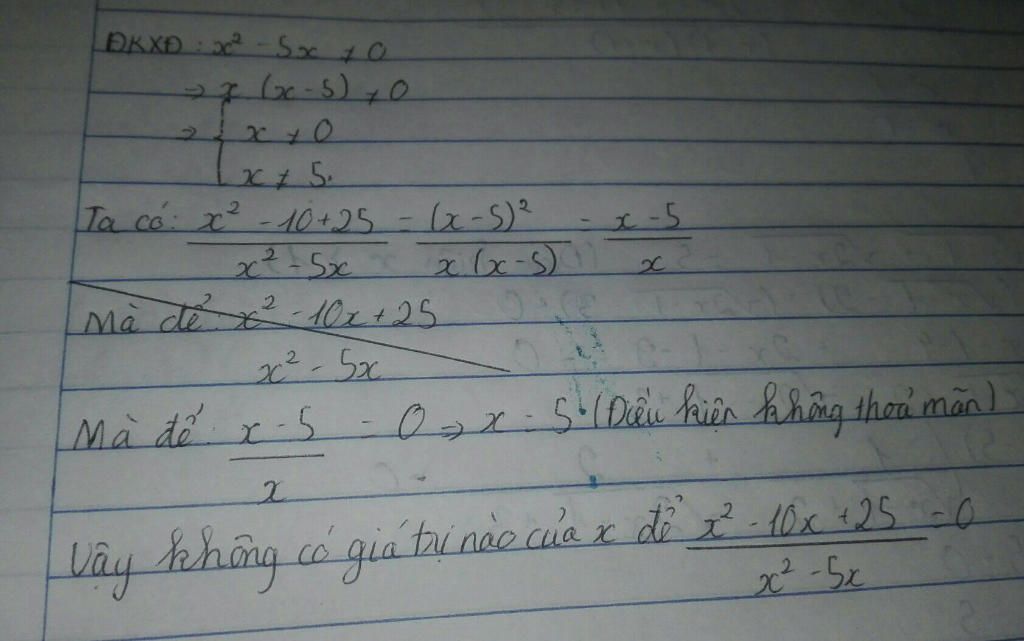 ĐKXĐ: x² - 5x ≠ 0
=> x (x - 5) ≠ 0
=> { x ≠ 0
x ≠ 5.
Ta có: (x² - 10 + 25)/(x² - 5x) = (x - 5)²/(x (x - 5)) = (x - 5)/x
Mà để x² - 10x + 25
x² - 5x
Mà để: (x - 5)/x = 0 => x = 5 (Điều kiện không thoả mãn)
Vậy không có giá trị nào của x để (x² - 10x + 25)/(x² - 5x) = 0